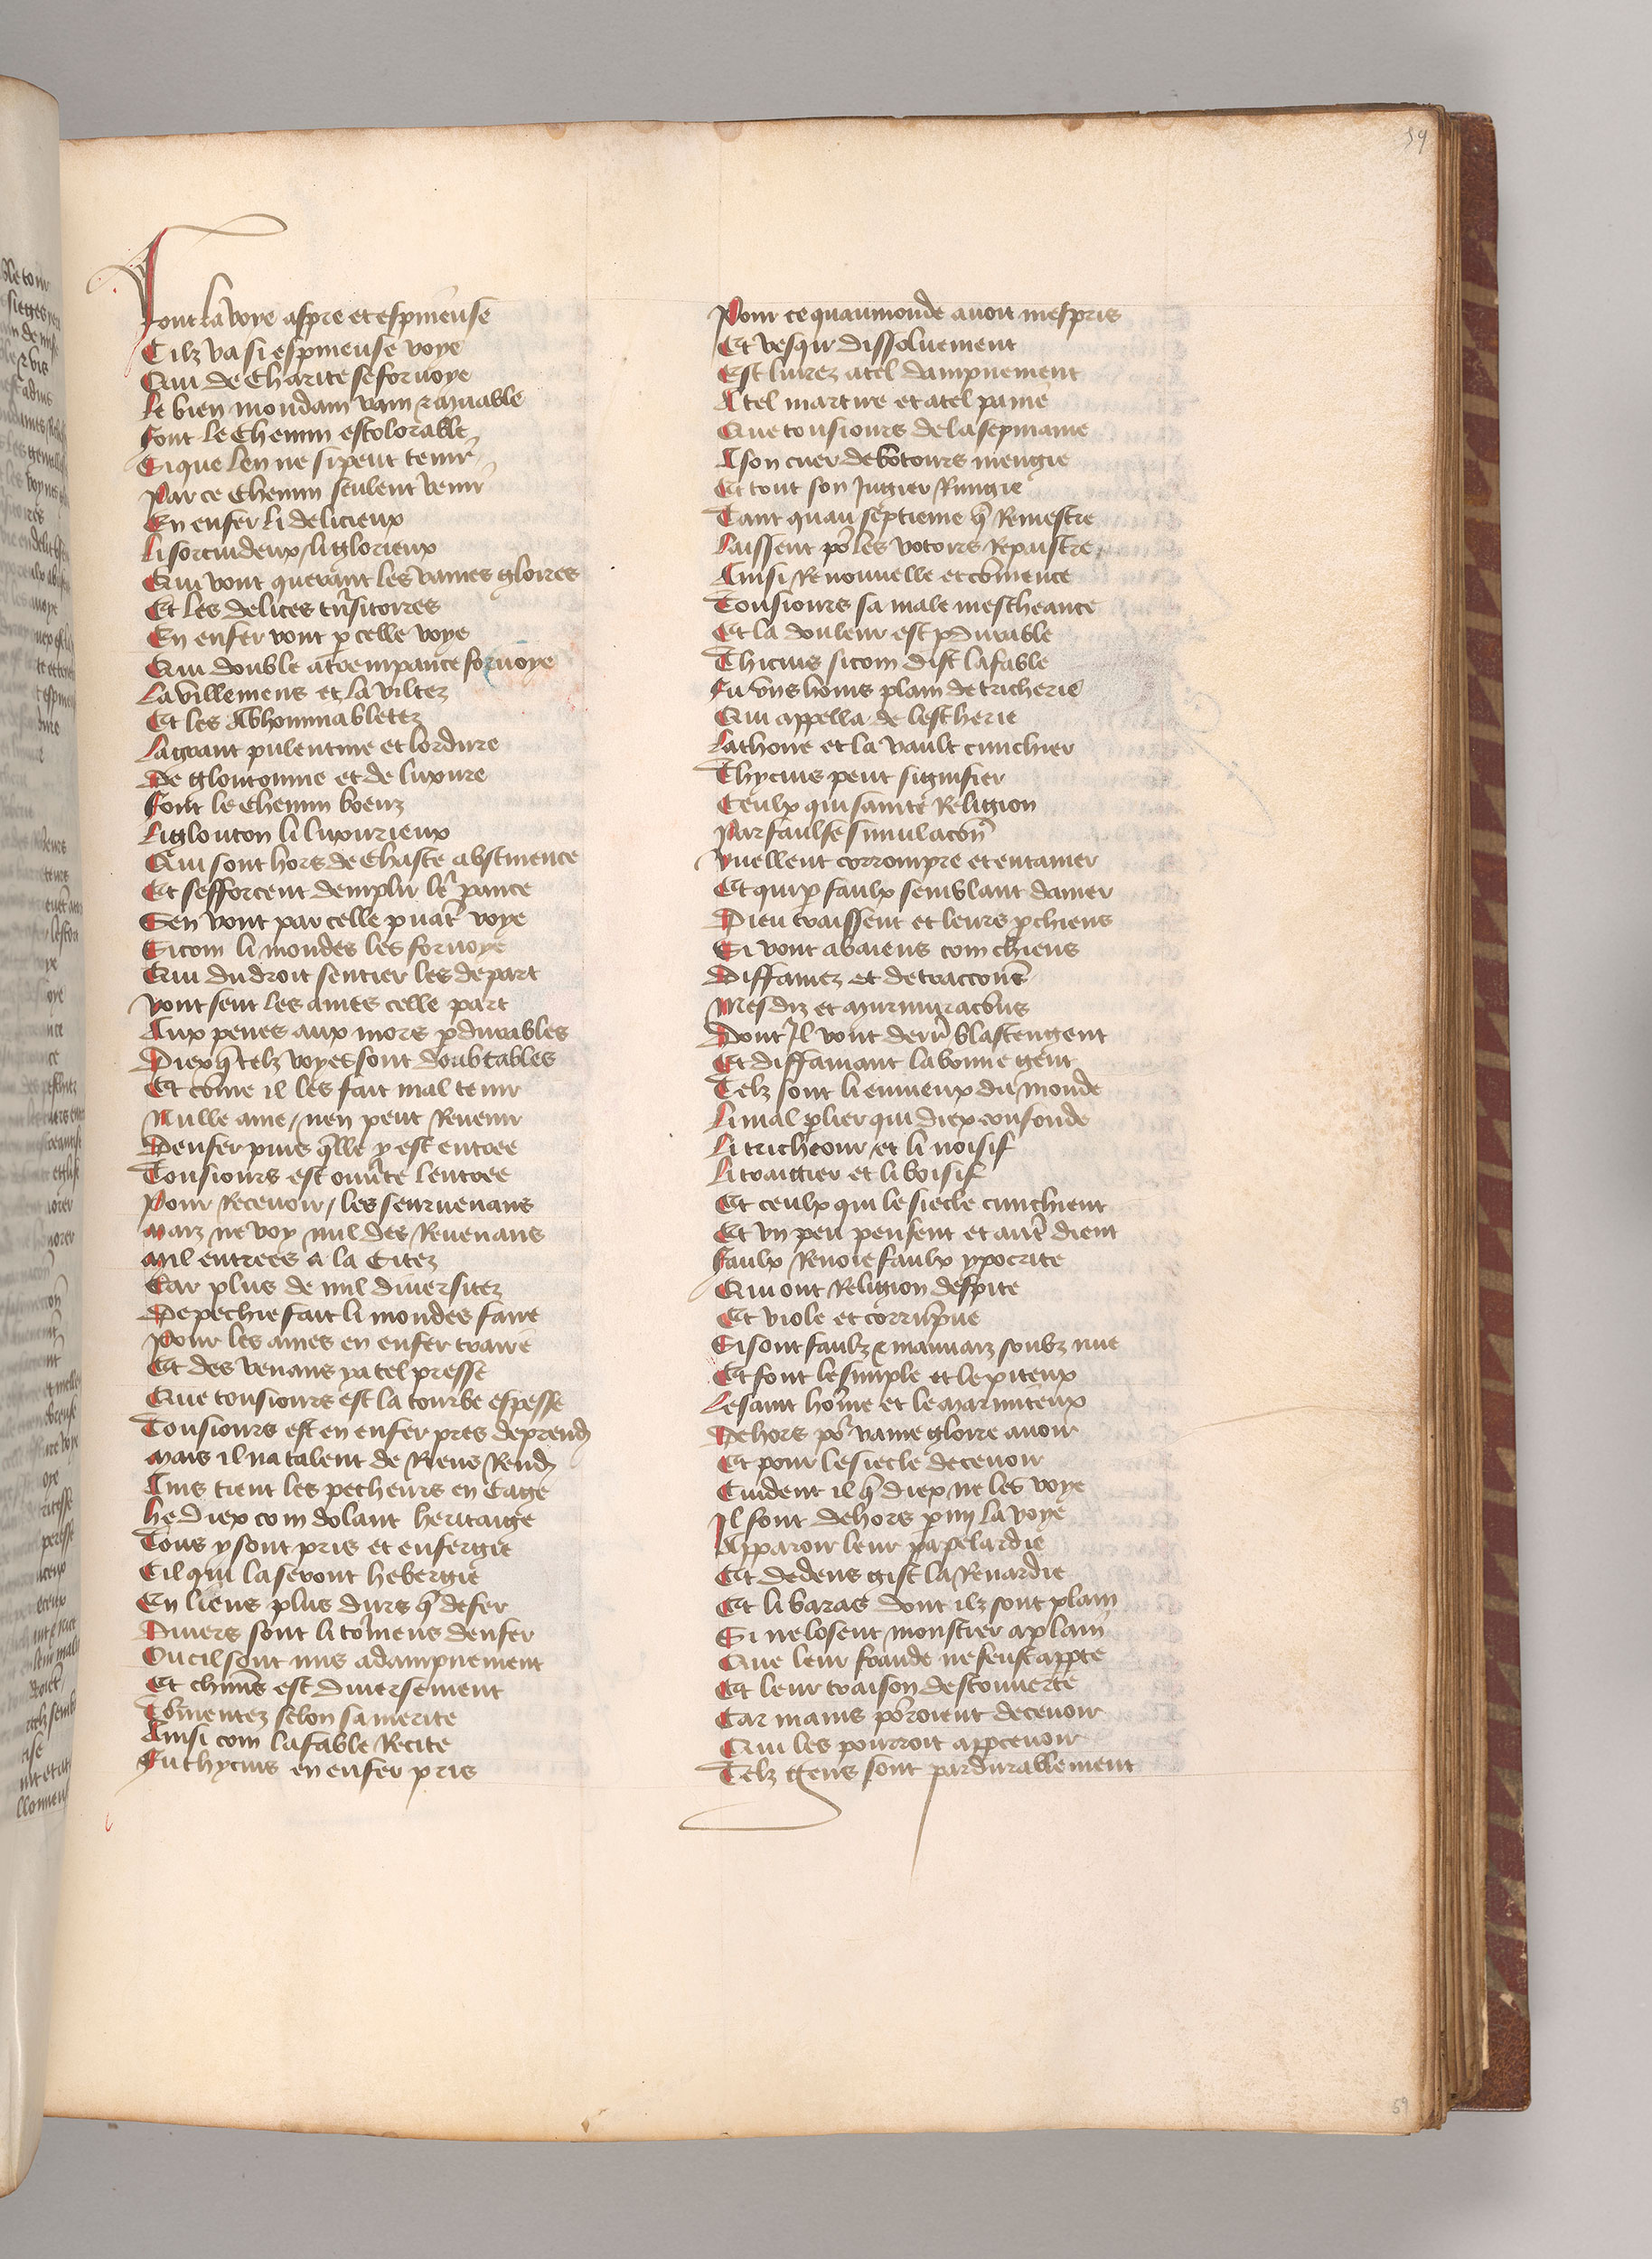 59
Font la voye aspre et espineuse
Cilz va si espineuse voye
Qui de Charite se foruoye
Le bien mondain vain & muable
Font le Chemin escolorable
Si que len ne si peut tenir
Par ce Chemin seulent venir
En enfer li delicieux
Li sorcuideux / li glorieux
Qui vont querant les vaines gloires
Et les delices trãsitoires
En enfer vont p celle voye
Qui double atrempance foruoye
La villemens et la viltez
Et les Abhominabletez
La grant pulentine et lordure
De gloutonnie et de luxure
Font le Chemin boeuz
Li glouton li luxurieux
Qui sont hors de Chaste abstinence
Et sefforcent demplir lẽ pance
Sen vont par celle puat̃ voye
Si com li mondes les foruoye
Qui du droit sentier les depart
Vont sent les ames celle part
Aux penes aux mors pdurables
Diex q̃ telz voyes sont doubtables
Et cõme il les fait mal tenir
Nulle ame / nen peut Reuenir
Denfer puis q̃lle y est entree
Tousiours est ouũte lentree
Pour Receuoir / les seuruenans
Maiz ne voy nul des Reuenans
Mil entrees a la Citez
Car plus de mil diuersitez
De pechie fait li mondes faire
Pour les ames en enfer traire
Et des venans ya tel presse
Que tousiours est la tourbe espesse
Tousiours est en enfer pres de prend̃
Mais il na talent de Riens Rend̃
Ains tient les pecheurs en Cage
he Diex com dolant heritaige
Tous y sont pris et enfergie
Cil qui la seront hebergie
En liens plus durs q̃ de fer
Diuers sont li tõmens denfer
Ou cil sont mis a dampnement
Et chũns est diuersement
Tõmentez selon sa merite
Ainsi com la fable Recite
Fu thycius en enfer pris
Pour ce quau monde auoit mespris
Et vesqui dissoluement
Est liurez a tel dampnement
A tel martire et a tel paine
Que tousiours de la sepmaine
A son cuer de võtours mengie
Et tout son Jugier Rungie
Tant quau septieme q̃ Remestre
Laissent põ les votoirs Repaistre
Ainsi Renouuelle et cõmence
Tousiours sa male mescheance
Et la douleur est pdurable
Thicius si com dist la fable
Fu vns homs plain de tricherie
Qui appella de lescherie
Lathone et la vault cunchier
Thycius peut signifier
Ceulx qui sainte Religion
Par faulse simulacõn
Vuellent corrompre et entamer
Et qui p faulx semblant damer
Dieu traissent et leurs pchiens
Si vont abaiens com chiens
Diffamez et detraccõns
Mesdiz et murmuracõns
Dont Il vont derrĩ blastengent
Et diffamant la bonne gent
Telz sont li enuieux du monde
Li mal plier qui diex confonde
Li tricheour / et li noisif
Li traittier et li boisif
Et ceulx qui le siecle cunchient
Et vn peu pensent et autr̃ dient
Faulx Renoie faulx ypocrite
Qui ont Religion despite
Et viole et corrũpue
Si sont faulz & mauuaiz soubz nue
Et font le simple et le piteux
Le saint hõme et le marmiteux
Dehors põ vaine gloire auoir
Et pour le siecle deceuoir
Cuident il q̃ diex ne les voye
Il font dehors pmy la voye
Apparoir leur papelardie
Et dedens gist la Renardie
Et li baras dont ilz sont plain
Si ne losent monstrer a plain
Que leur fraude ne feust appte
Et leur traison descouuerte
Car mains põroient deceuoir
Qui les pourroit appceuoir
Telz gens sont pardurablement
59